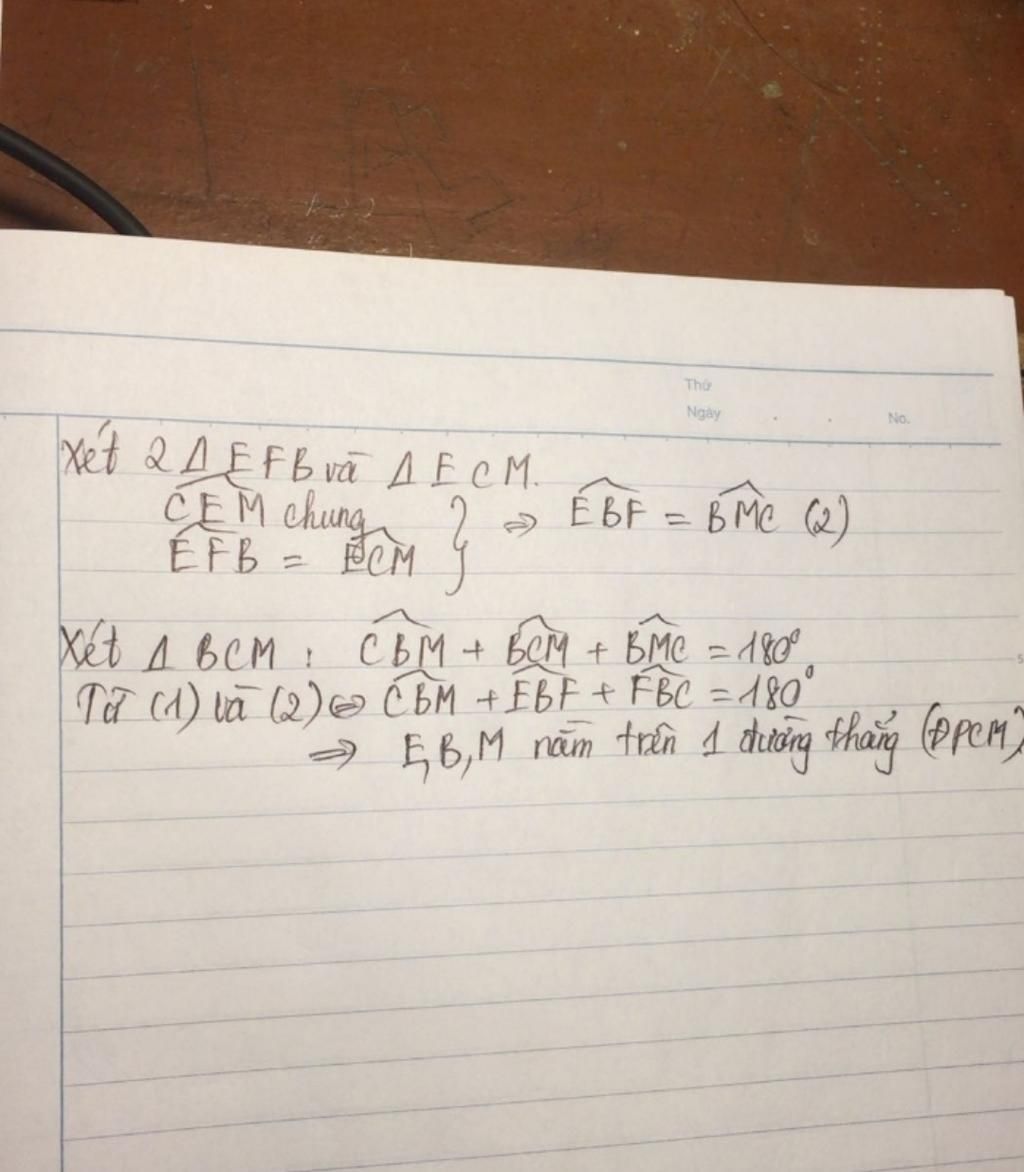 Thứ
Ngày . . No.
Xét 2 Δ EFB và Δ ECM.
CEM chung } => EBF = BMC (2)
EFB = ECM
Xét Δ BCM : CBM + BCM + BMC = 180°
Từ (1) và (2) <=> CBM + EBF + FBC = 180°
=> E, B, M nằm trên 1 đường thẳng (ĐPCM)